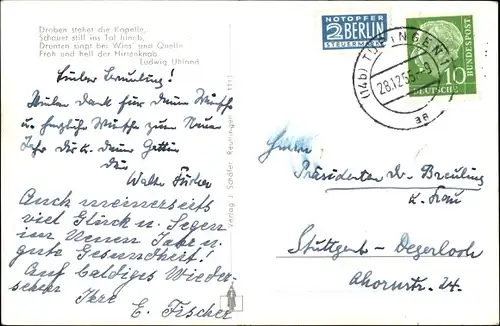 Droben stehet die Kapelle,
Schauet still ins Tal hinab,
Drunten singt bei Wies' und Quelle
Froh und hell der Hirtenknab.
Ludwig Uhland
NOTOPFER
2 BERLIN
STEUERMARKE
(14b) TÜBINGEN 1
28.12.55
ae
10
DEUTSCHE
BUNDESPOST
Lieber Breuling!
Vielen Dank für Deine Wünsche
u. herzliche Wünsche zum Neuen
Jahr Dir u. Deiner Gattin
Dein
Walter Fischer
Auch meinerseits
viel Glück u. Segen
im Neuen Jahr u.
gute Gesundheit!
Auf baldiges Wieder-
sehen Ihre
E. Fischer
Verlag J. Schäfer Reutlingen
Herrn
Präsidenten Dr. Breuling
u. Frau
Stuttgart-Degerloch
Ahornstr. 24.